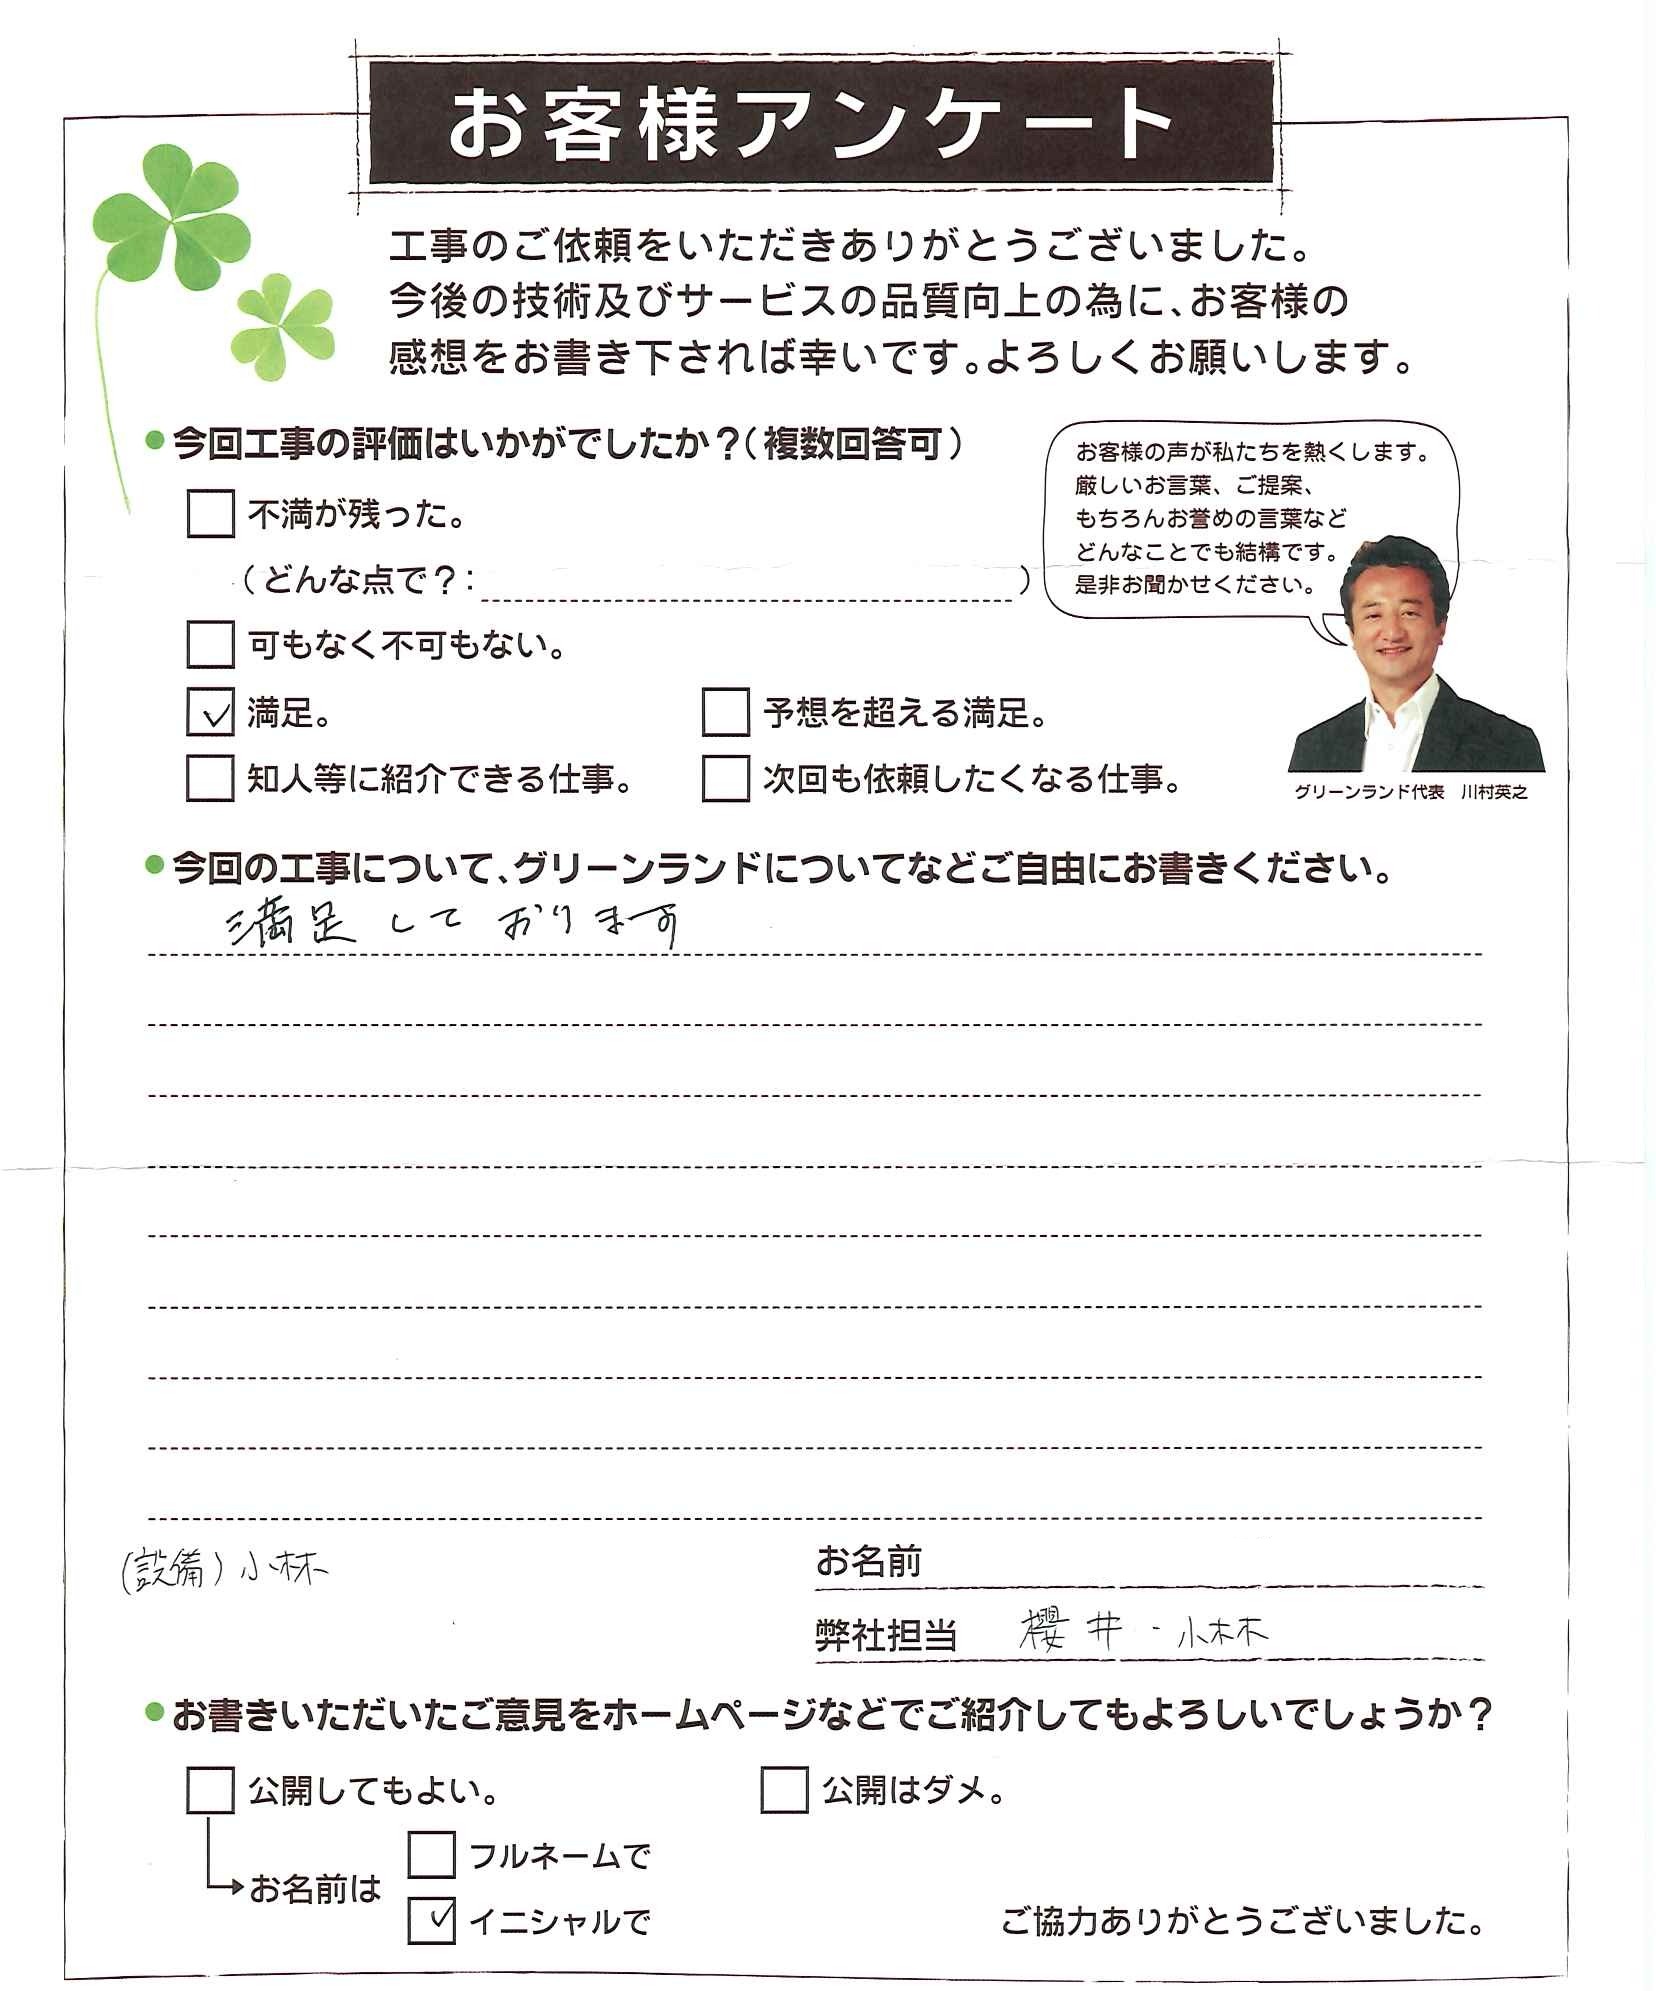 お客様アンケート
工事のご依頼をいただきありがとうございました。
今後の技術及びサービスの品質向上の為に、お客様の
感想をお書き下されば幸いです。よろしくお願いします。
●今回工事の評価はいかがでしたか？(複数回答可)
お客様の声が私たちを熱くします。
厳しいお言葉、ご提案、
もちろんお誉めの言葉など
どんなことでも結構です。
是非お聞かせください。
不満が残った。
(どんな点で？: )
可もなく不可もない。
✓ 満足。
予想を超える満足。
知人等に紹介できる仕事。
次回も依頼したくなる仕事。
グリーンランド代表 川村英之
●今回の工事について、グリーンランドについてなどご自由にお書きください。
満足しております
(設備)小林
お名前
弊社担当 櫻井・小林
●お書きいただいたご意見をホームページなどでご紹介してもよろしいでしょうか？
公開してもよい。
公開はダメ。
お名前は
フルネームで
✓ イニシャルで
ご協力ありがとうございました。